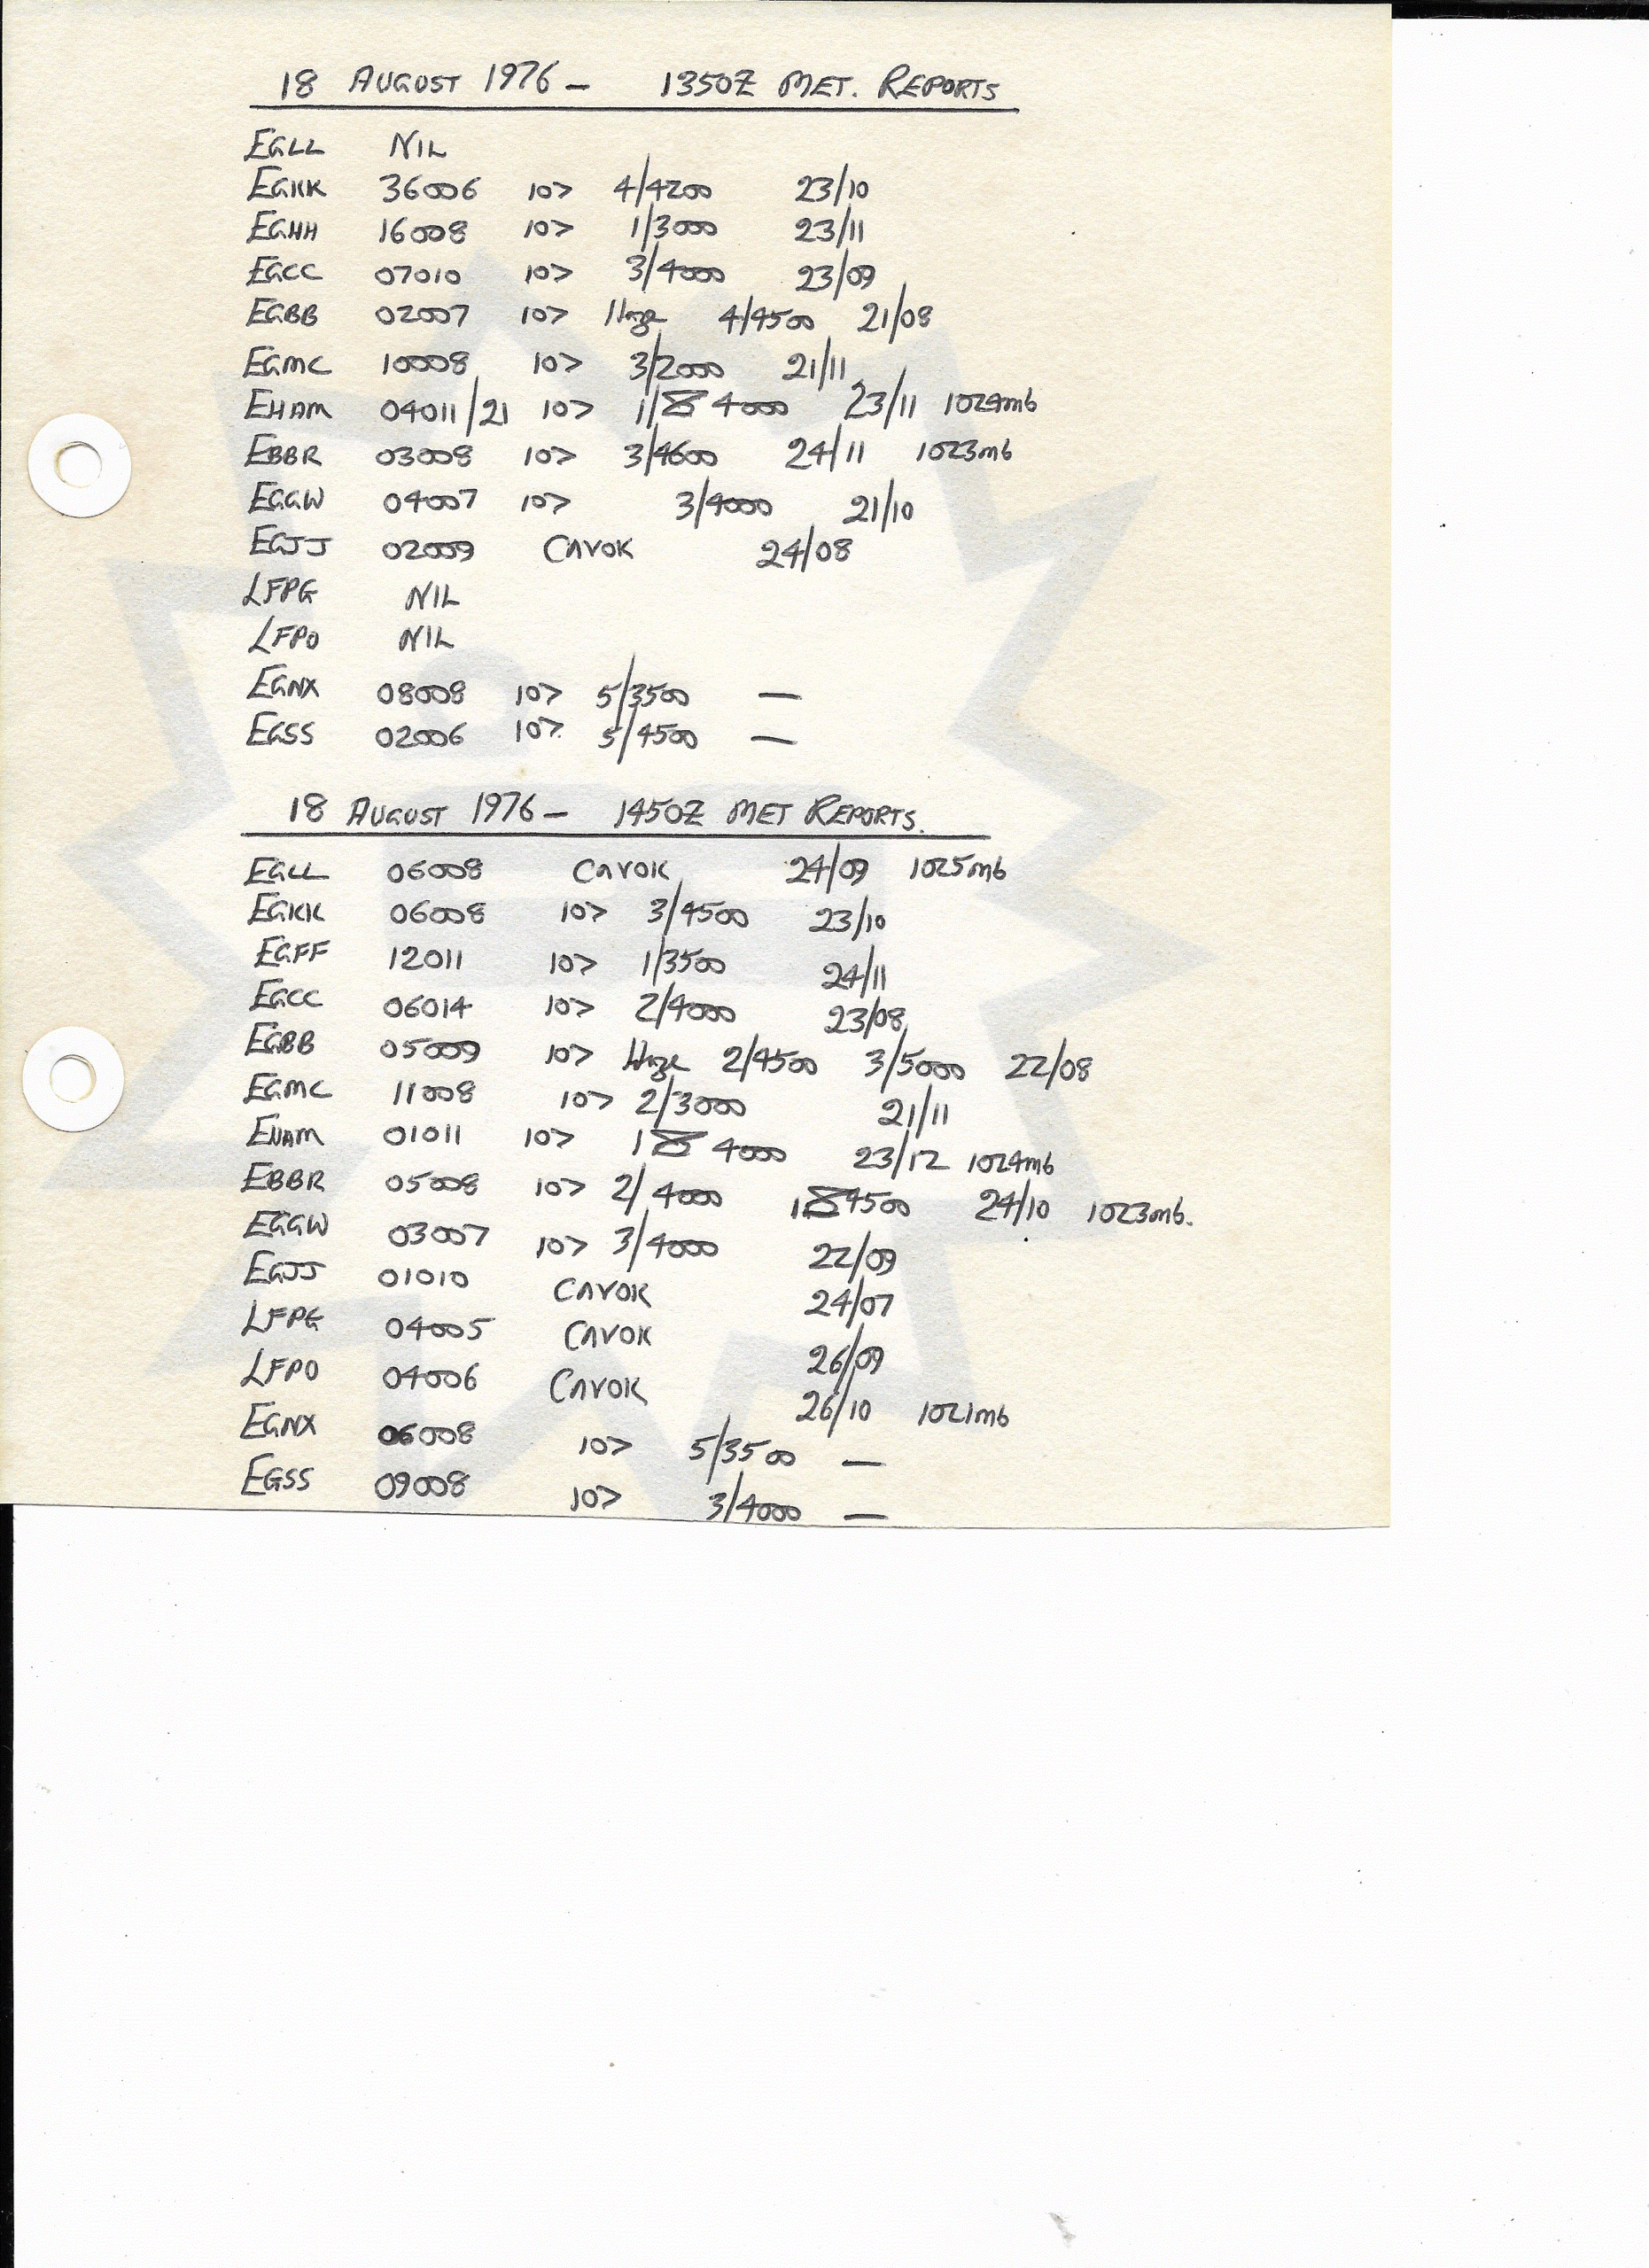 18 AUGUST 1976 – 1350Z MET. REPORTS
EGLL NIL
EGKK 36006 10> 4/4200 23/10
EGHH 16008 10> 1/3000 23/11
EGCC 07010 10> 3/4000 23/09
EGBB 02007 10> Haze 4/4500 21/08
EGMC 10008 10> 3/2000 21/11
EHAM 04011/21 10> 1/8 4000 23/11 1024mb
EBBR 03008 10> 3/4600 24/11 1023mb
EGGW 04007 10> 3/4000 21/10
EGJJ 02009 CAVOK 24/08
LFPG NIL
LFPO NIL
EGNX 08008 10> 5/3500 —
EGSS 02006 10> 5/4500 —
18 AUGUST 1976 – 1450Z MET REPORTS.
EGLL 06008 CAVOK 24/09 1025mb
EGKK 06008 10> 3/4500 23/10
EGFF 12011 10> 1/3500 24/11
EGCC 06014 10> 2/4000 23/08
EGBB 05009 10> Haze 2/4500 3/5000 22/08
EGMC 11008 10> 2/3000 21/11
EHAM 01011 10> 18 4000 23/12 1024mb
EBBR 05008 10> 2/4000 18 4500 24/10 1023mb.
EGGW 03007 10> 3/4000 22/09
EGJJ 01010 CAVOK 24/07
LFPG 04005 CAVOK 26/09
LFPO 04006 CAVOK 26/10 1021mb
EGNX 06008 10> 5/3500 —
EGSS 09008 10> 3/4000 —